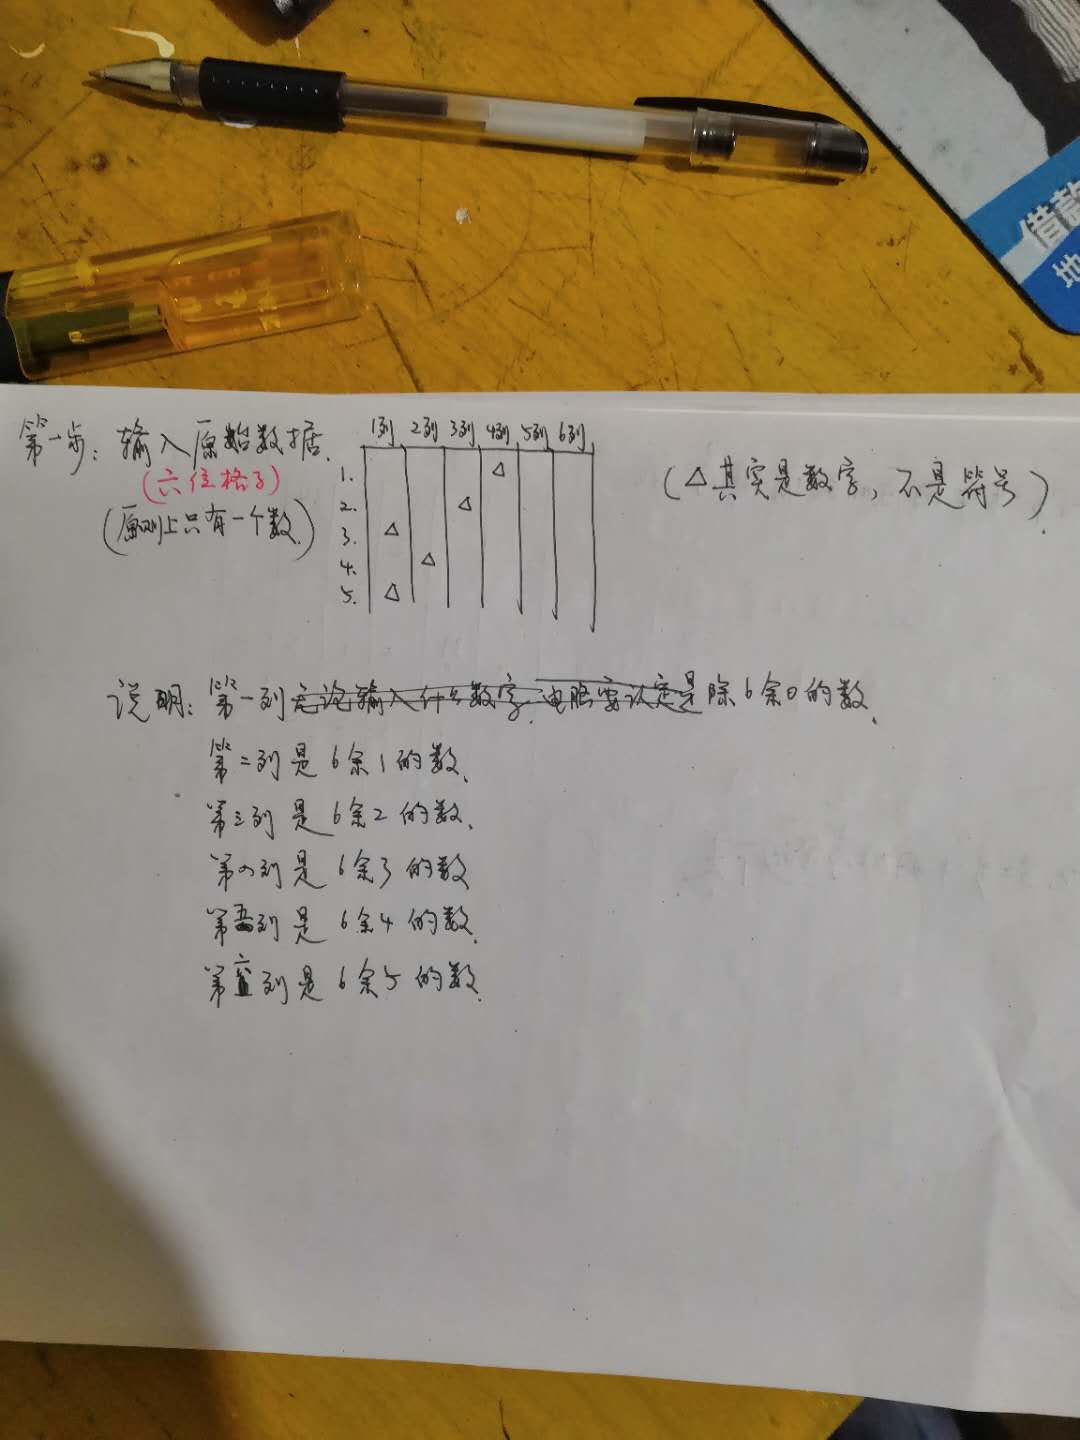 借款
地
第一步：输入原始数据.
（六位格子）
（原则上只有一个数.）
1列 2列 3列 4列 5列 6列
1. △
2. △
3. △
4. △
5. △
（△其实是数字，不是符号）.
说明：第一列无论输入什么数字，电脑要认定是除6余0的数.
第二列是6余1的数.
第三列是6余2的数.
第四列是6余3的数
第五列是6余4的数.
第六列是6余5的数.